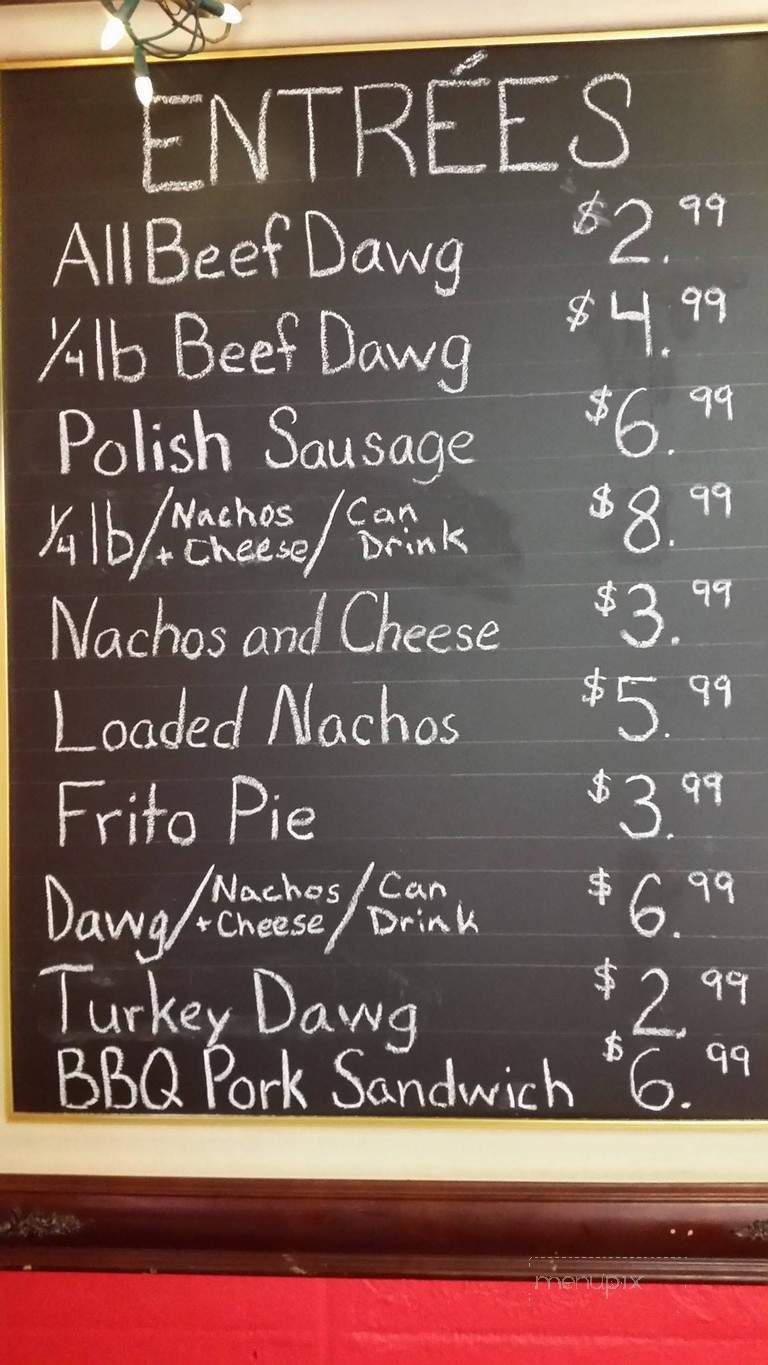 ENTRÉES
All Beef Dawg $2.99
1/4 lb Beef Dawg $4.99
Polish Sausage $6.99
1/4 lb/Nachos + Cheese/Can Drink $8.99
Nachos and Cheese $3.99
Loaded Nachos $5.99
Frito Pie $3.99
Dawg/Nachos + Cheese/Can Drink $6.99
Turkey Dawg $2.99
BBQ Pork Sandwich $6.99
menupix